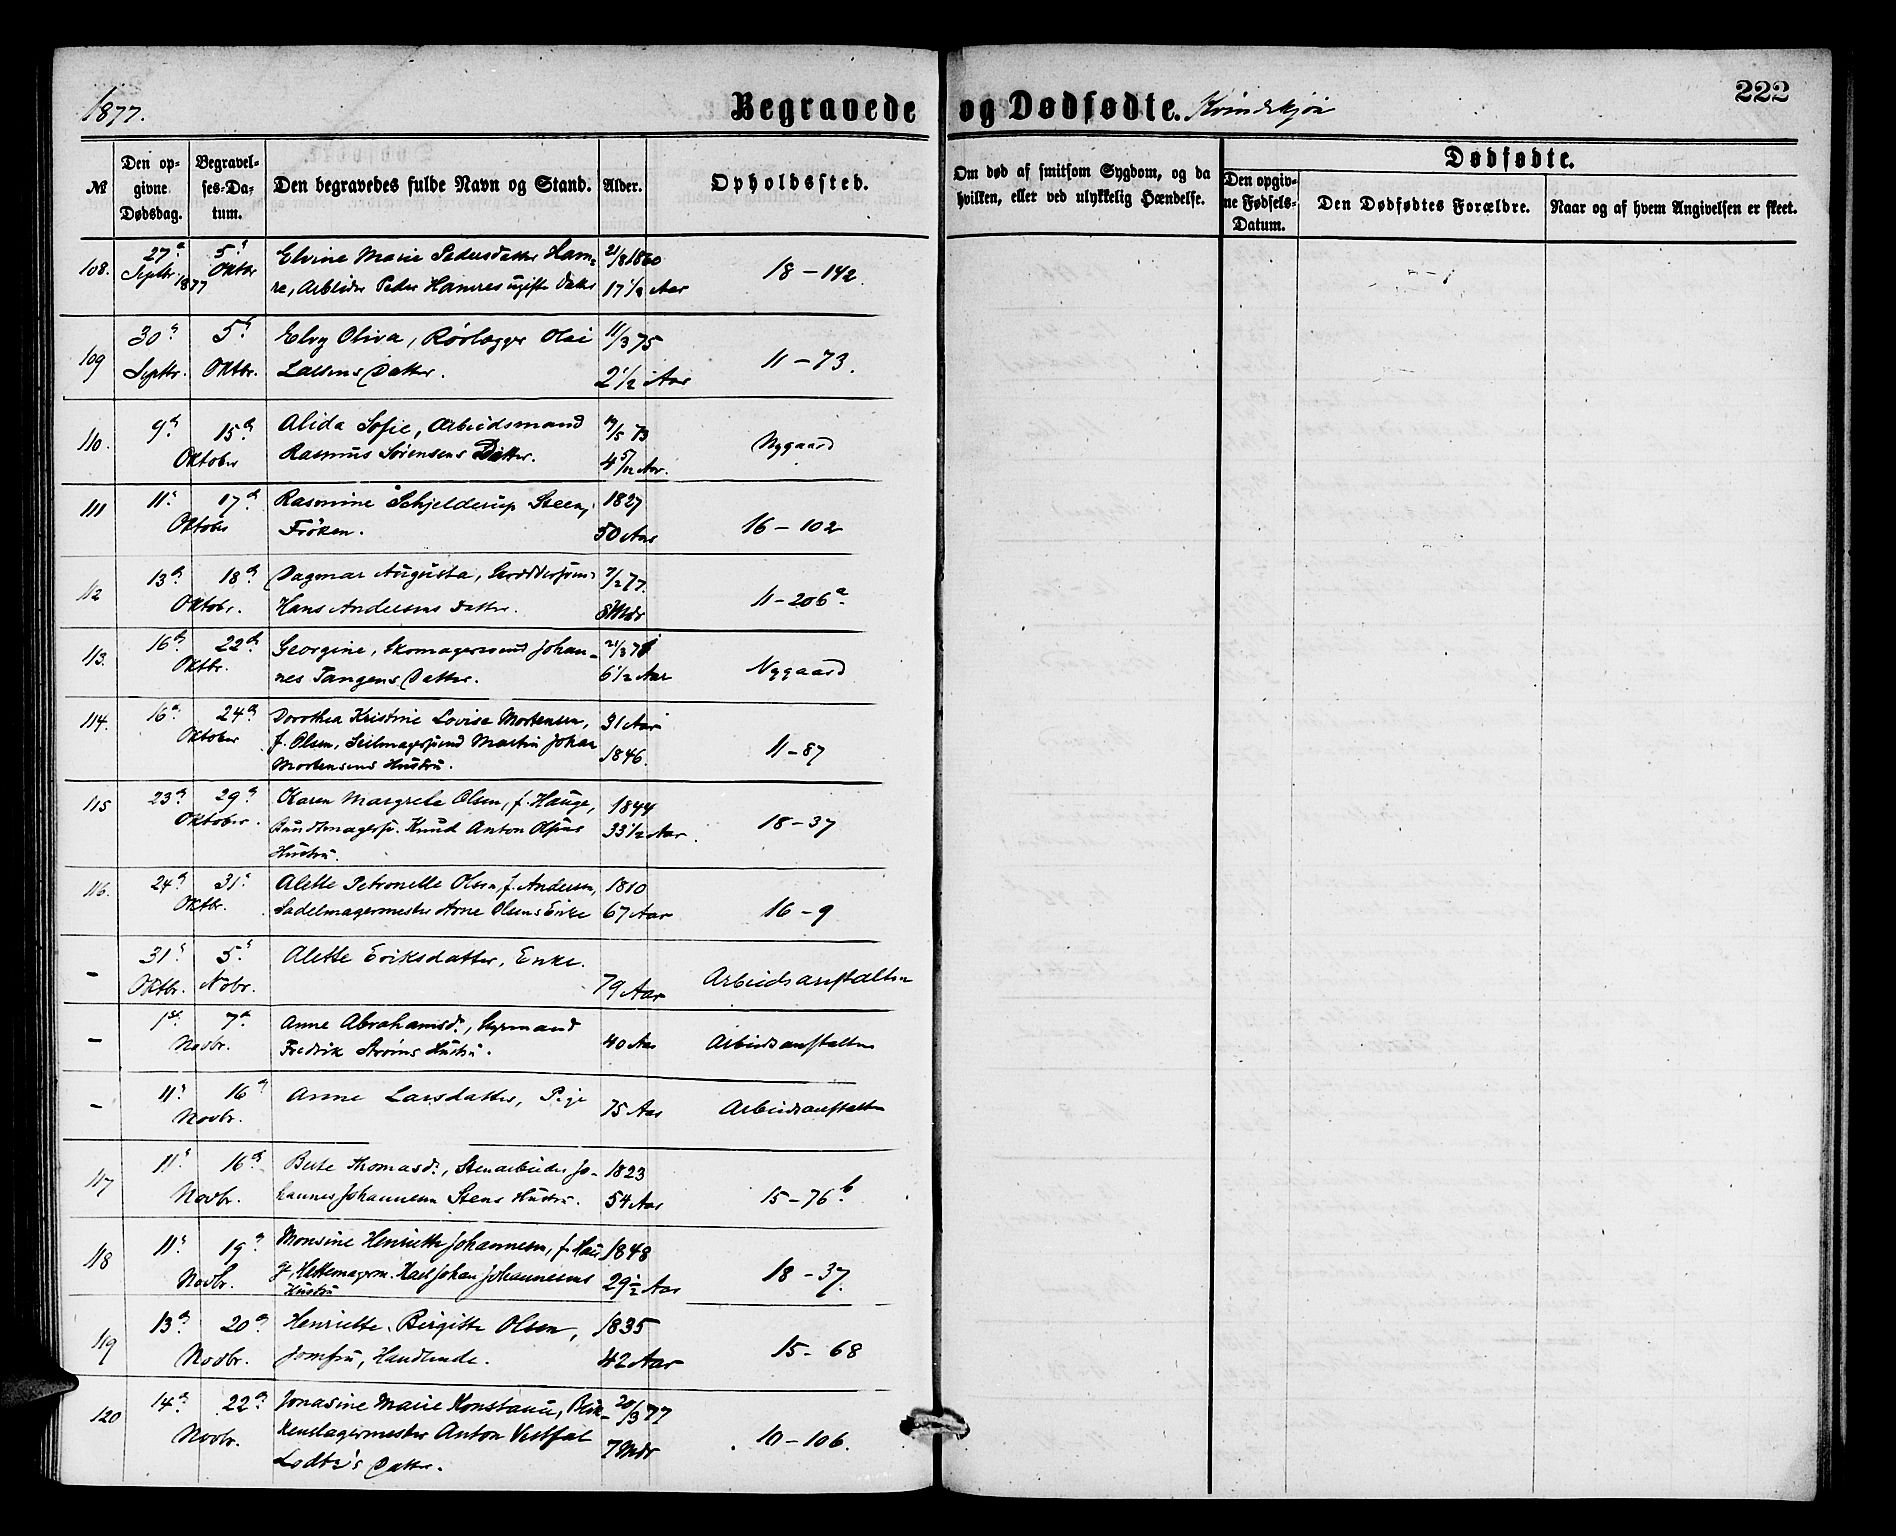 1877.
Begravede og Dødfødte. Kvindekjøn
222
№
Den op-
givne
Dødsdag.
Begravel-
ses-Da-
tum.
Den begravedes fulde Navn og Stand.
Alder.
Opholdssted.
Om død af smitsom Sygdom, og da
hvilken, eller ved ulykkelig Hændelse.
Dødfødte.
Den opgiv-
ne Fødsels-
Datum.
Den Dødfødtes Forældre.
Naar og af hvem Angivelsen er skeet.
108. 27de Septbr. 1877 5te Oktbr Elvine Marie Pedersdatter Ham-
re, Arbeider Peder Hamres ugifte Datter 21/8 1860 17 1/2 Aar 18 – 142.
109 30te Septbr. 5te Oktbr. Elvy Oliva, Rørlægger Olai
Larsens Datter. 11/3 75 2 1/2 Aar 11 – 73.
110. 9de 15de Oktober Alida Sofie, Arbeidsmand
Rasmus Sørensens Datter. /5 73 4 5/12 Aar. Nygaard
111 11te 17de Oktober Rasmine Schjelderup Steen,
Frøken. 1827 50 Aar 16 – 102
112 13de 18de Oktobr. Dagmar Augusta,
Hans Andersens Datter. 7/2 77. 8 Mdr 11 – 206a.
113. 16de 22de Oktbr. Georgine, Skomagersvend Johan-
nes Tangens Datter. 21/3 71 6 1/2 Aar Nygaard
114. 16de 24de Oktober Dorothea Kristine Lovise Mortensen,
f. Olsen, Seilmagersvend Martin Johan
Mortensens Hustru. 31 Aar 1846. 11 – 87
115 23de 29de Oktober. Karen Margrete Olsen, f. Hauge,
Buntmagersv. Knud Anton Olsens
Hustru. 1844 33 1/2 Aar. 18 – 37
116. 24de 31te Oktbr. Alette Petronelle Olsen, f. Andersen,
Sadelmagermester Arne Olsens Enke 1810 67 Aar 16 – 9
– 31te Oktbr. 5te Nobr. Alette Eriksdatter, Enke. 79 Aar Arbeidsanstalten
– 1ste 7de Novbr. Anne Abrahamsd., Styrmand
Fredrik Strøms Hustru. 40 Aar Arbeidsanstalten
– 11te 16de Novbr. Anne Larsdatter, Pige 75 Aar Arbeidsanstalten
117 11te 16de Novbr. Berte Thomasd., Stenarbeider Jo-
hannes Johannesen Stens Hustru. 1823 54 Aar 15 – 76b
118 11te 19de Novbr. Monsine Henriette Johannesen, f. Hau-
ge, Hattemagerm. Karl Johan Johannesens
Hustru 1848 29 1/2 Aar 18 – 37.
119 13de 20de Novbr. Henriette Birgitte Olsen,
Jomfru, Handlende. 1835 42 Aar 15 – 68
120 14de 22de Novbr. Jonasine Marie Konstance, Blik-
kenslagermester Anton Vestfal
Lodtz's Datter. 20/3 77 7 Mdr 10 – 106.